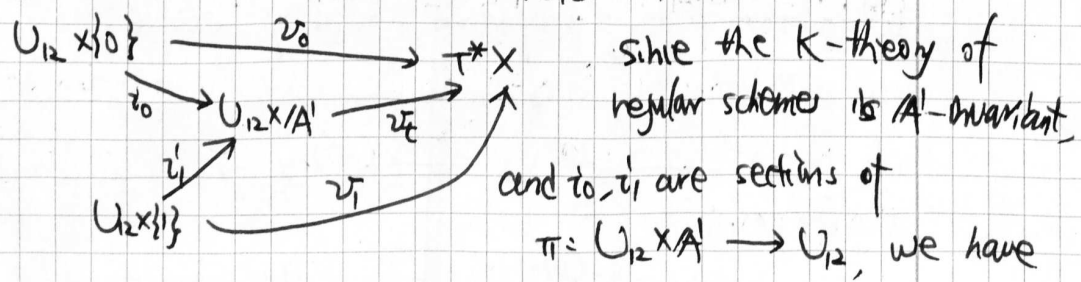 U₁₂ × {0}
v₀
T*X
i₀
U₁₂ × A¹
vₜ
i₁
v₁
U₁₂×{1}
since the K-theory of
regular schemes is A¹-invariant,
and i₀, i₁ are sections of
π: U₁₂ × A¹ → U₁₂, we have